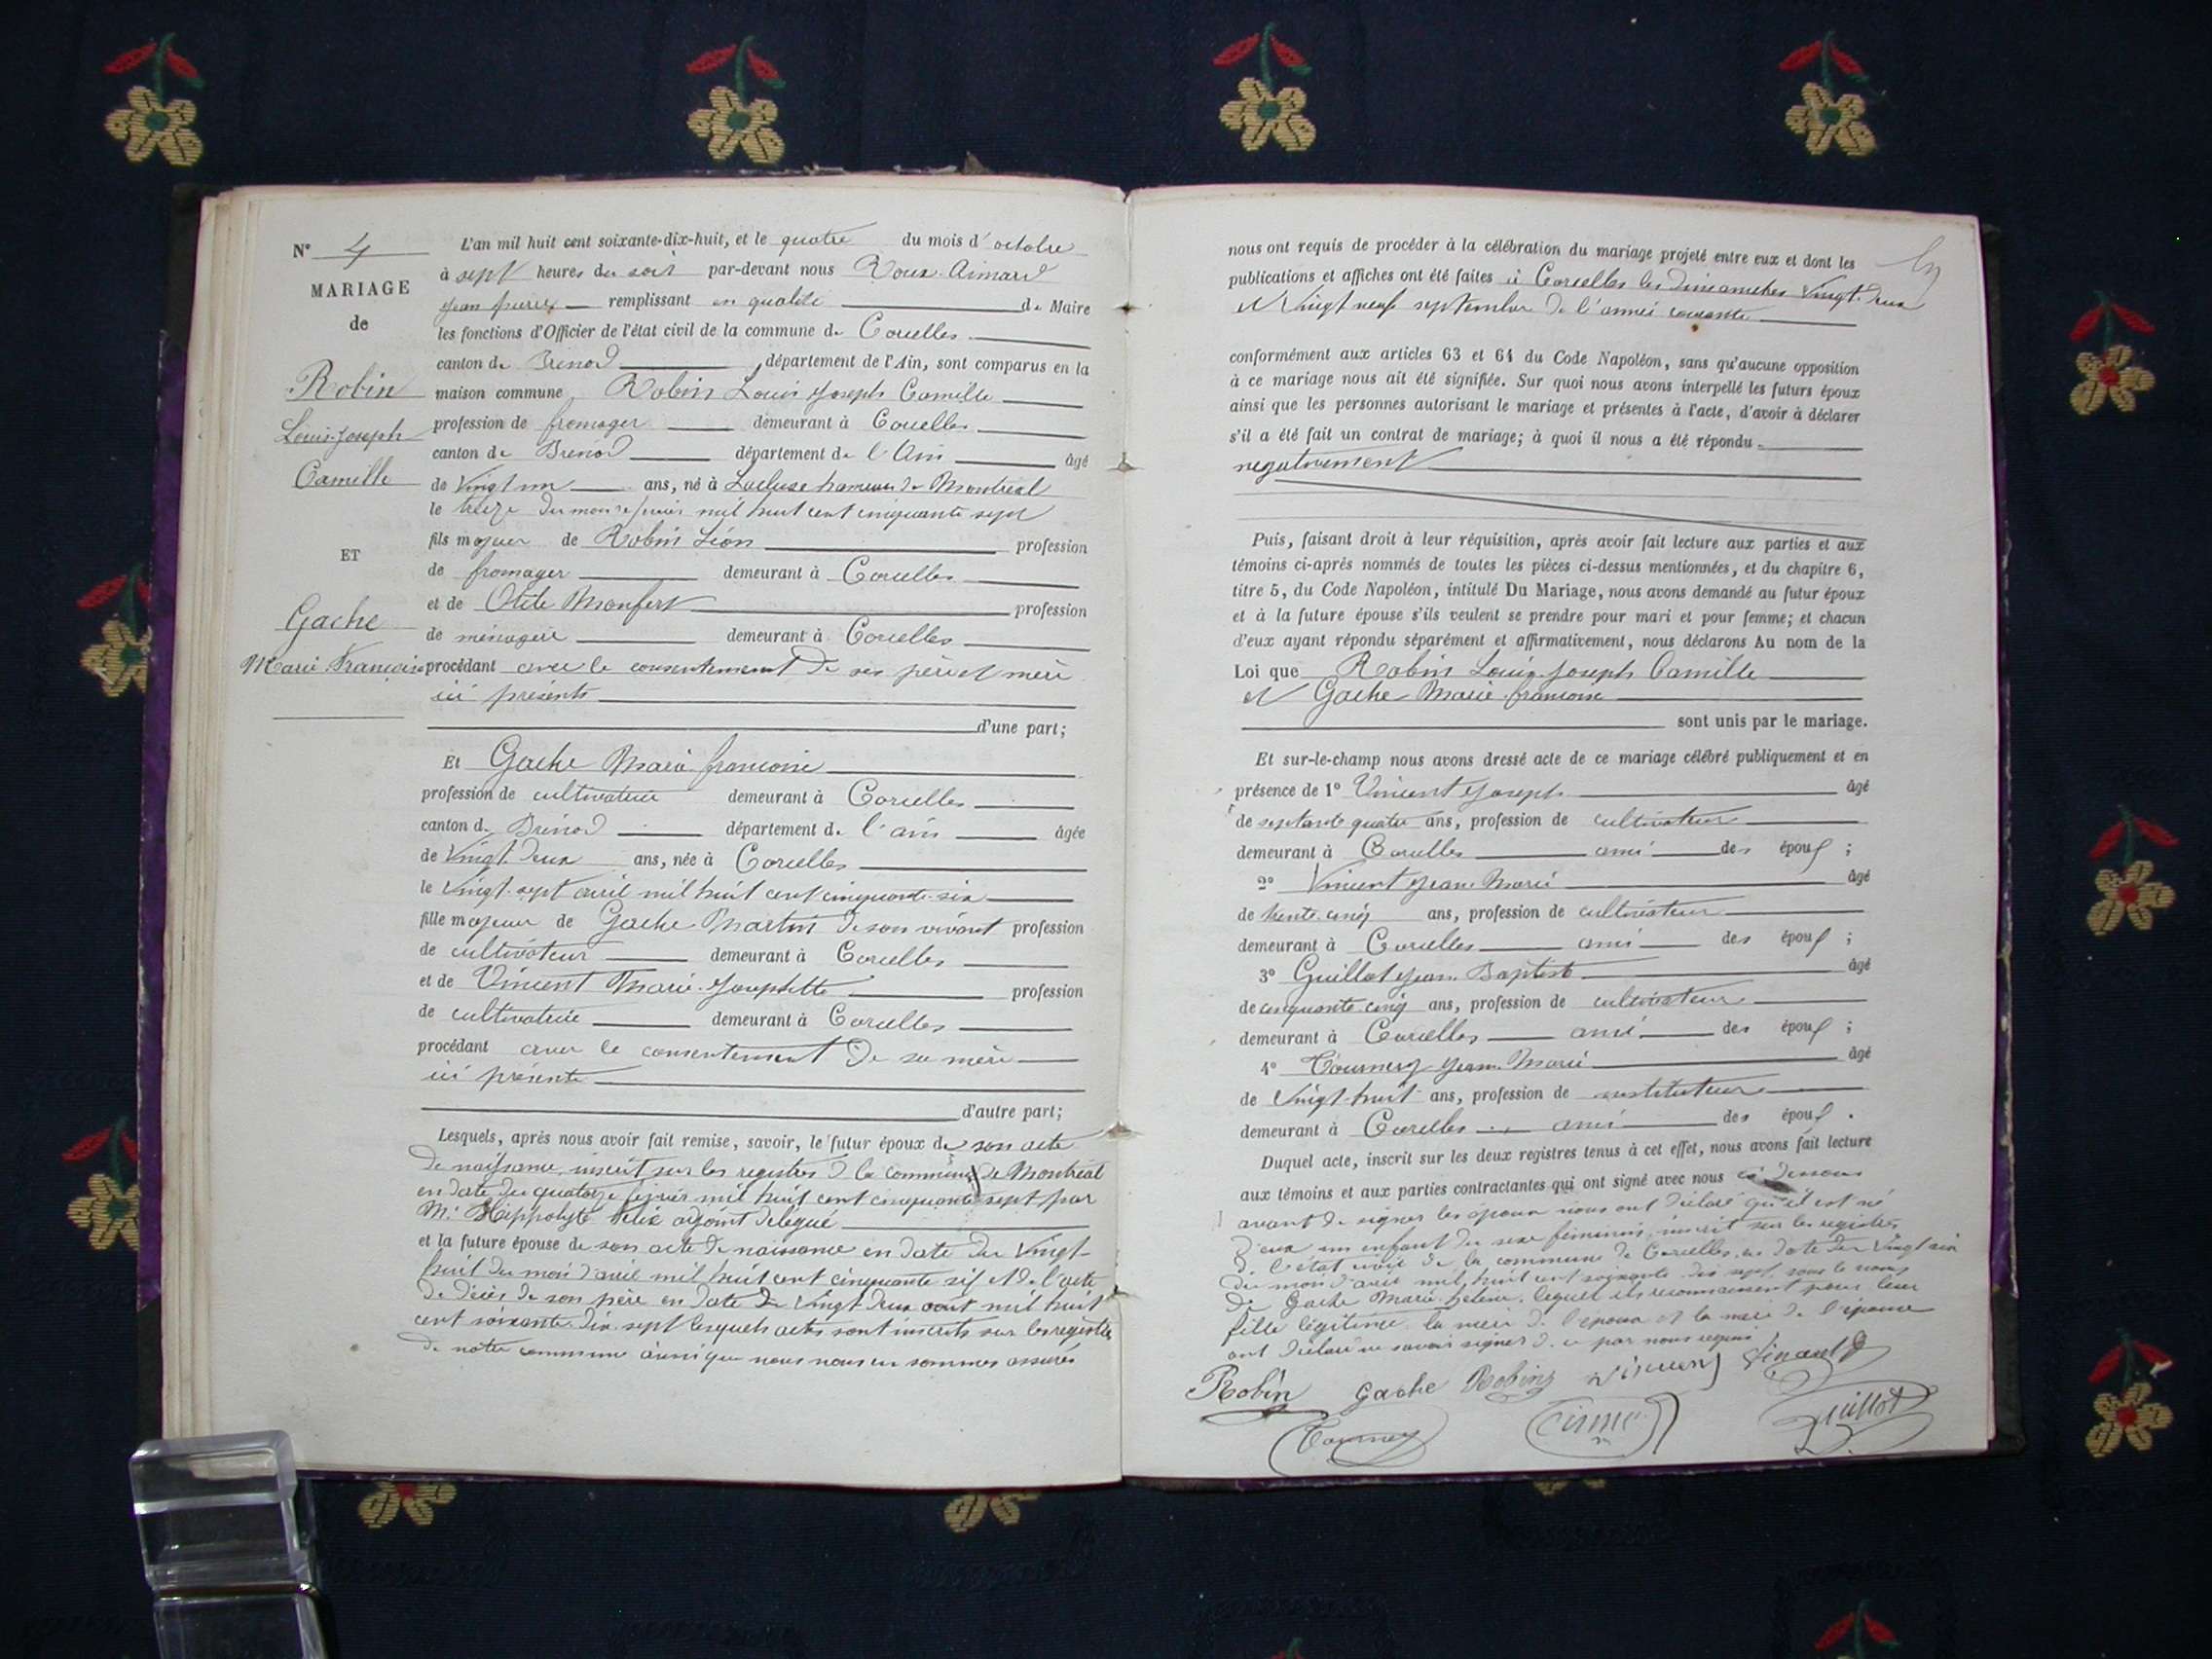 N° 4
MARIAGE
de
Robin
Louis Joseph
Camille
ET
Gache
Marie Françoise
L'an mil huit cent soixante-dix-huit, et le quatre du mois d'octobre
à sept heures du soir par-devant nous Roux Aimard
Jean pierre remplissant en qualité de Maire
les fonctions d'Officier de l'état civil de la commune de Corcelles
canton de Brenod département de l'Ain, sont comparus en la
maison commune, Robin Louis Joseph Camille
profession de fromager demeurant à Corcelles
canton de Brénod département de l'Ain âgé
de vingt un ans, né à Lacluse hameau de Montréal
le treize du mois de février mil huit cent cinquante sept
fils majeur de Robin Léon profession
de fromager demeurant à Corcelles
et de Monfert profession
de ménagère demeurant à Corcelles
procédant avec le consentement de ses père et mère
ici présents
d'une part;
Et Gache Marie françoise
profession de cultivatrice demeurant à Corcelles
canton de Brénod département de l'ain âgée
de vingt deux ans, née à Corcelles
le vingt-sept avril mil huit cent cinquante-six
fille majeur de Gache Martin de son vivant profession
de cultivateur demeurant à Corcelles
et de Vincent Marie Josephette profession
de cultivatrice demeurant à Corcelles
procédant avec le consentement de sa mère
ici présente
d'autre part;
Lesquels, après nous avoir fait remise, savoir, le futur époux de son acte
de naissance inscrit sur les registres de la commune de Montréal
en date du quatorze février mil huit cent cinquante sept par
Mr Hippolyte adjoint délégué
et la future épouse de son acte de naissance en date du vingt-
huit du mois d'avril mil huit cent cinquante six et de l'acte
de décès de son père en date du vingt deux août mil huit
cent soixante dix sept lesquels actes sont inscrits sur les registres
de notre commune ainsi que nous nous en sommes assurés
nous ont requis de procéder à la célébration du mariage projeté entre eux et dont les
publications et affiches ont été faites à Corcelles les dimanches vingt-deux
et vingt neuf septembre de l'année courante
conformément aux articles 63 et 64 du Code Napoléon, sans qu'aucune opposition
à ce mariage nous ait été signifiée. Sur quoi nous avons interpellé les futurs époux
ainsi que les personnes autorisant le mariage et présentes à l'acte, d'avoir à déclarer
s'il a été fait un contrat de mariage; à quoi il nous a été répondu
négativement
Puis, faisant droit à leur réquisition, après avoir fait lecture aux parties et aux
témoins ci-après nommés de toutes les pièces ci-dessus mentionnées, et du chapitre 6,
titre 5, du Code Napoléon, intitulé Du Mariage, nous avons demandé au futur époux
et à la future épouse s'ils veulent se prendre pour mari et pour femme; et chacun
d'eux ayant répondu séparément et affirmativement, nous déclarons Au nom de la
Loi que Robin Louis Joseph Camille
et Gache Marie françoise
sont unis par le mariage.
Et sur-le-champ nous avons dressé acte de ce mariage célébré publiquement et en
présence de 1° Vincent Joseph âgé
de septante quatre ans, profession de cultivateur
demeurant à Corcelles ami des époux ;
2° Vincent Jean Marie âgé
de trente-cinq ans, profession de cultivateur
demeurant à Corcelles ami des époux ;
3° Guillot Jean Baptiste âgé
de cinquante-cinq ans, profession de cultivateur
demeurant à Corcelles ami des époux ;
4° Tournery Jean Marie âgé
de vingt-huit ans, profession de instituteur
demeurant à Corcelles ami des époux .
Duquel acte, inscrit sur les deux registres tenus à cet effet, nous avons fait lecture
aux témoins et aux parties contractantes qui ont signé avec nous ci dessous
avant de signer les époux nous ont déclaré qu'il est né
d'eux un enfant du sexe féminin, inscrit sur les registres
de l'état civil de la commune de Corcelles en date du vingt six
du mois d'avril mil huit cent soixante dix sept, sous le nom
de Gache Marie helene lequel ils reconnaissent pour leur
fille légitime. la mère de l'époux et la mère de l'épouse
ont déclaré ne savoir signer de ce par nous requis
Robin Gache Robin
Guillot